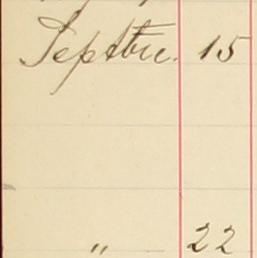 Septbre. 15
" 22